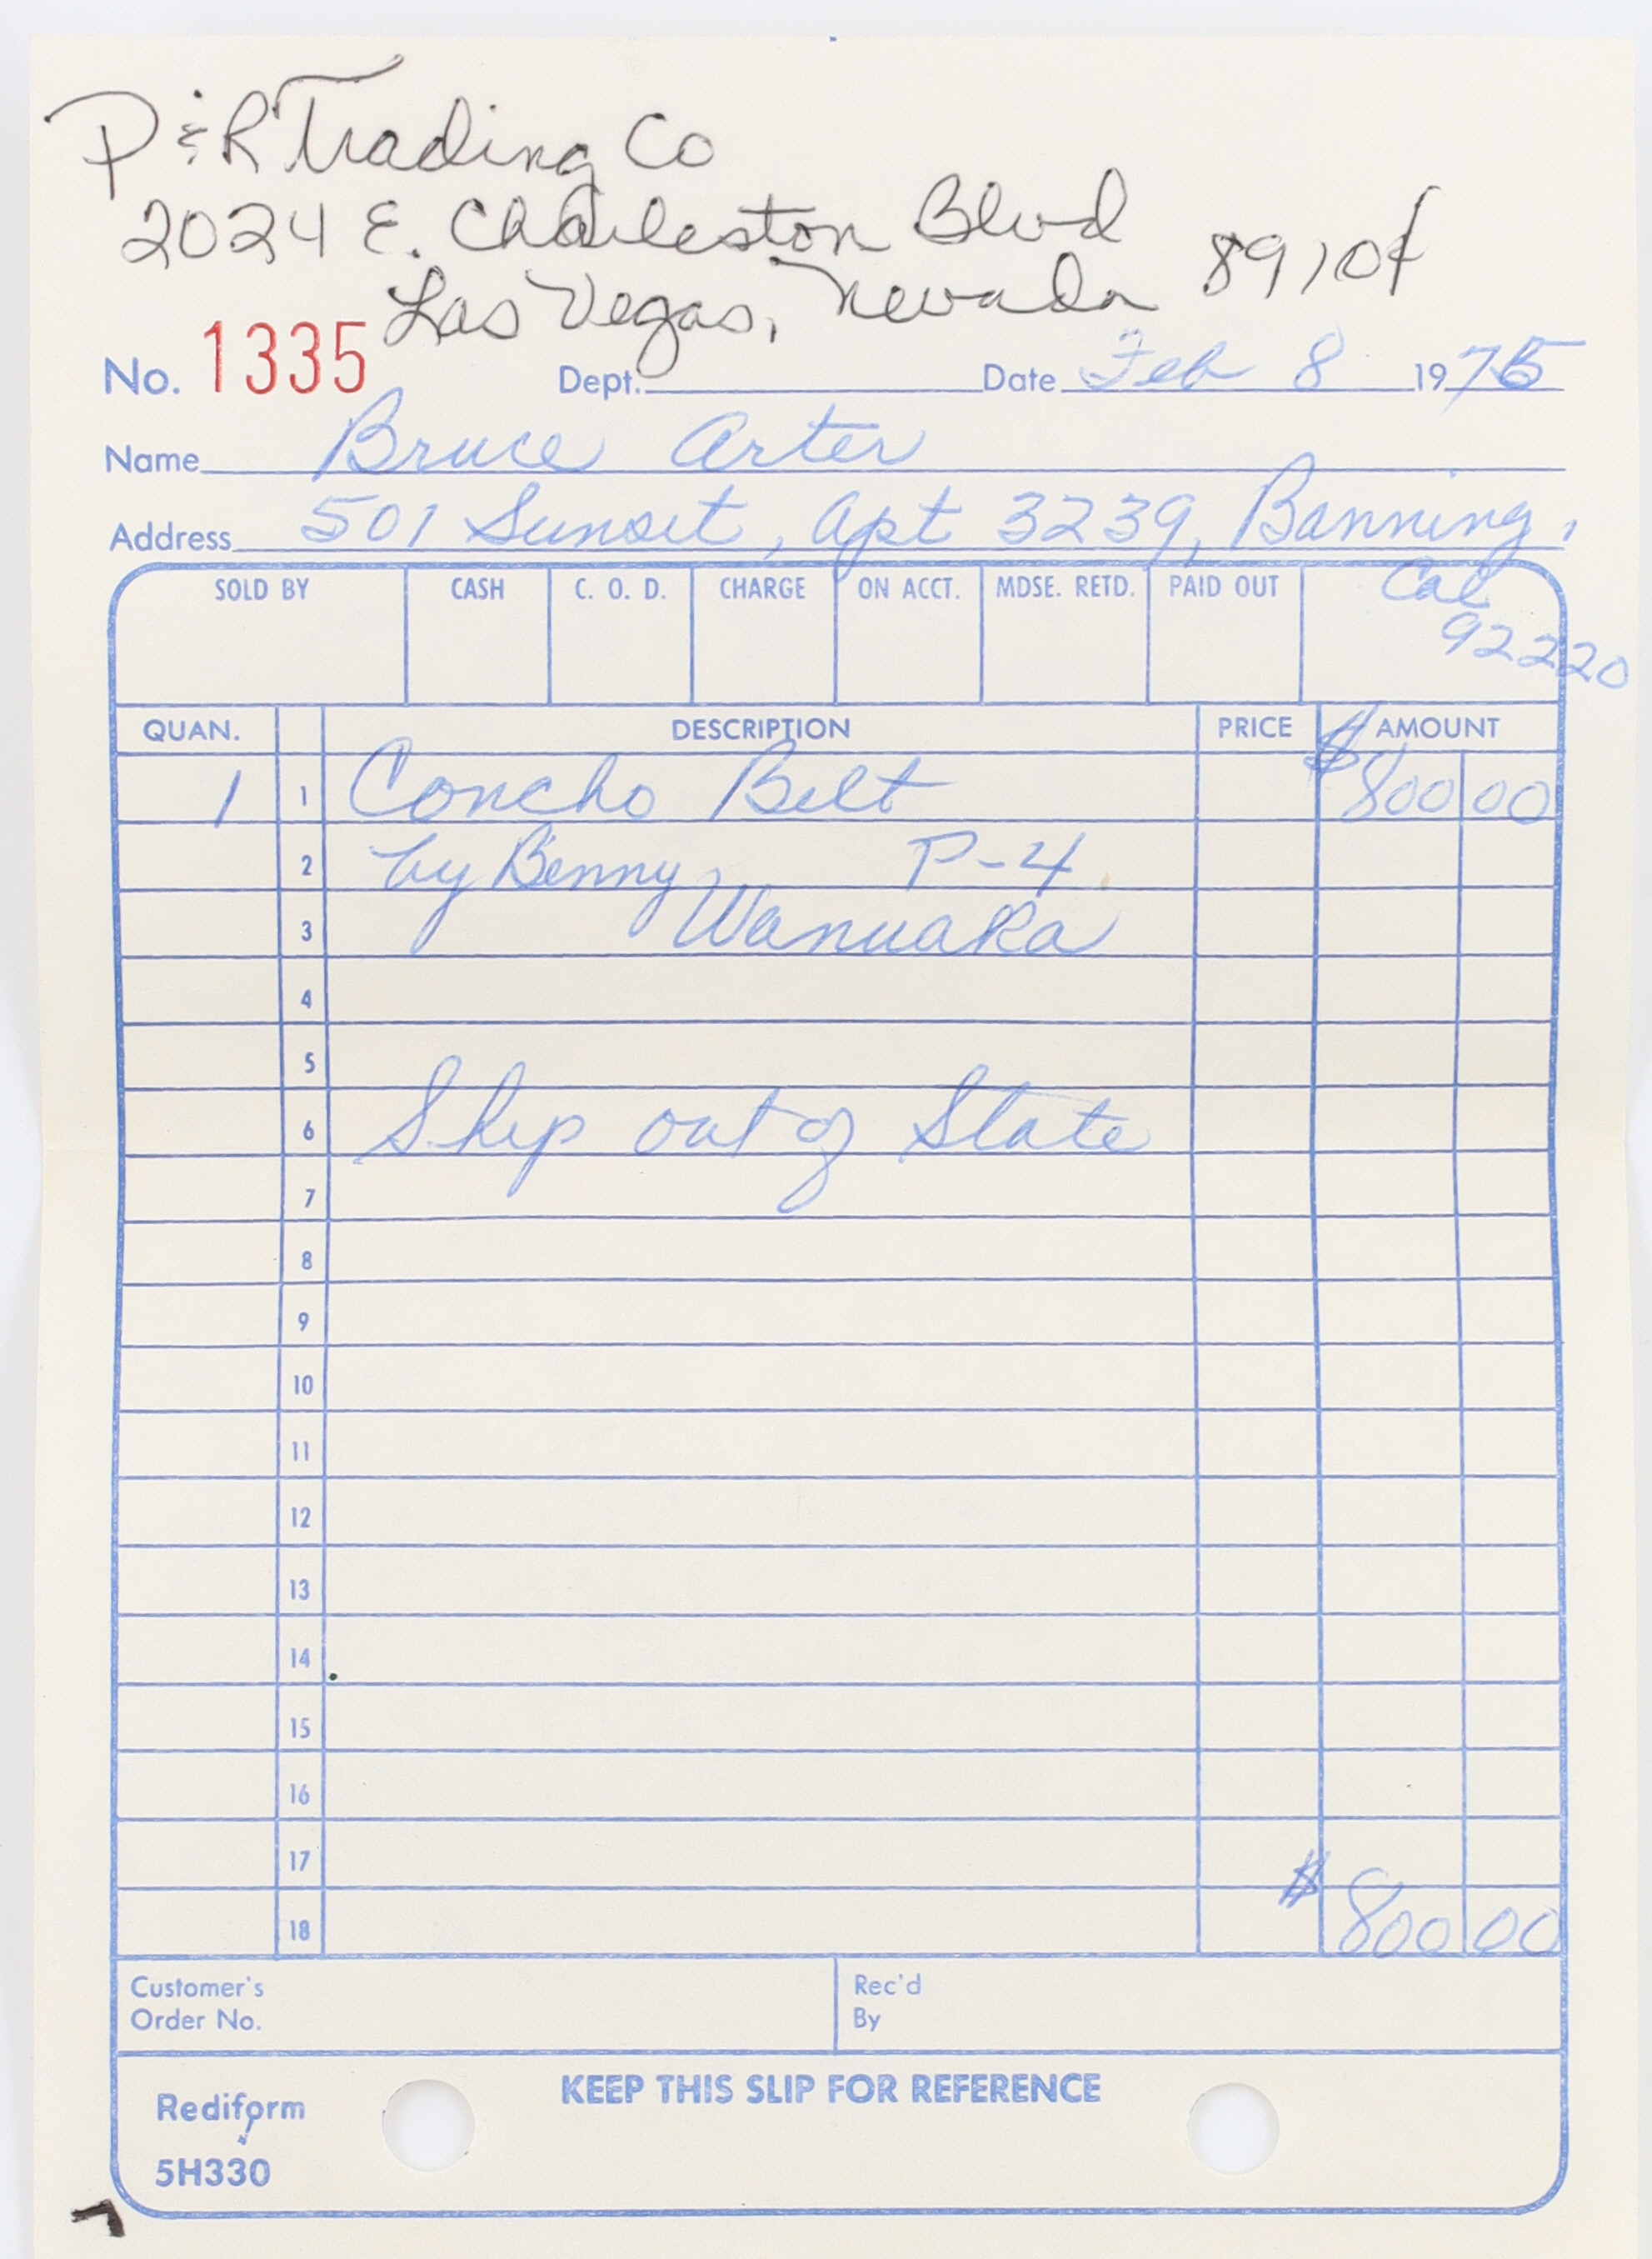 P & R Trading Co
2024 E. Charleston Blvd
Las Vegas, Nevada 89104
No. 1335 Dept. Date Feb 8 1975
Name Bruce Arter
Address 501 Sunset, Apt 3239, Banning,
Cal
92220
SOLD BY CASH C. O. D. CHARGE ON ACCT. MDSE. RETD. PAID OUT
QUAN. DESCRIPTION PRICE AMOUNT
1 1 Concho Belt $800 00
2 by Benny P-4
3 Wanuaka
4
5
6 Ship out of State
7
8
9
10
11
12
13
14
15
16
17
18 $800 00
Customer's Order No. Rec'd By
KEEP THIS SLIP FOR REFERENCE
Rediform
5H330